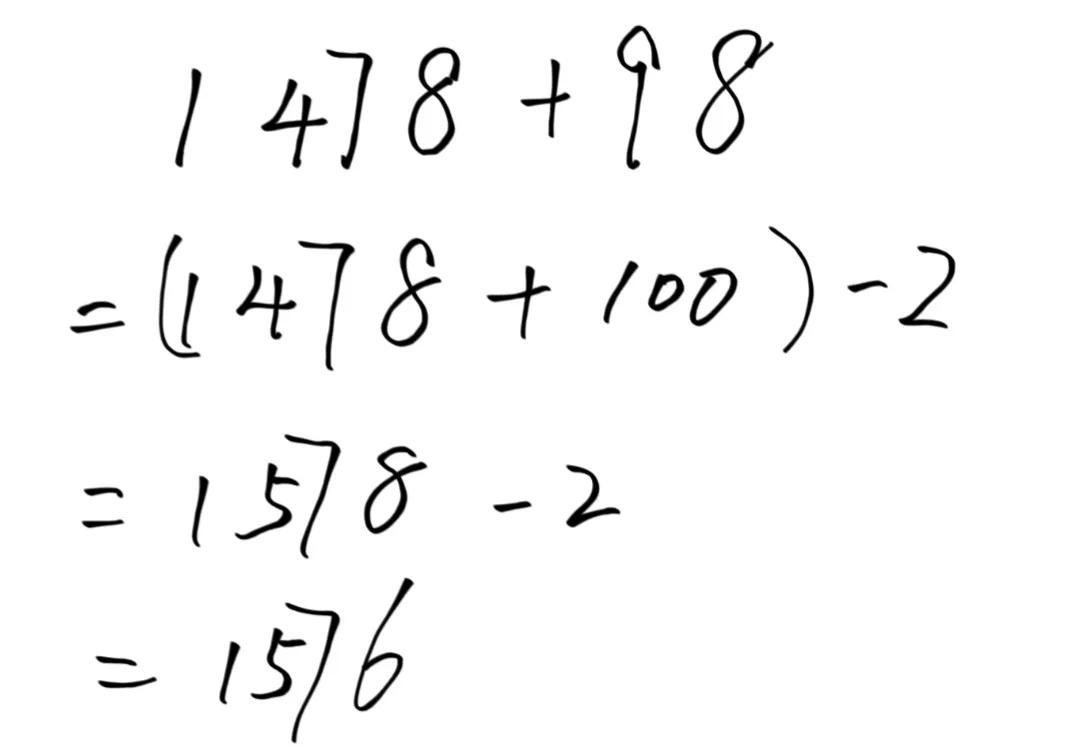 1478+98
=(1478+100)-2
=1578-2
=1576